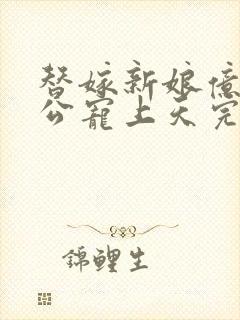 替嫁新娘億
公寵上天完
錦鯉生